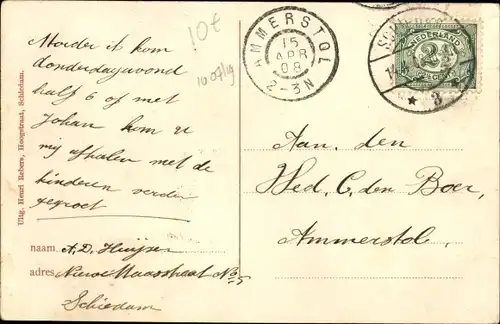 10€
10 07/19
Moeder ik kom
donderdagavond
half 6 of met
Johan kom u
mij afhalen met de
kinderen verder
gegroet
naam: A.D. Huijser
adres: Nieuwe Maasstraat No 5
Schiedam
Uitg. Henri Rebers, Hoogstraat, Schiedam.
AMMERSTOL
15
APR
08
2-3N
NEDERLAND
2½
3
Aan den
Wed. C. den Boer,
Ammerstol.